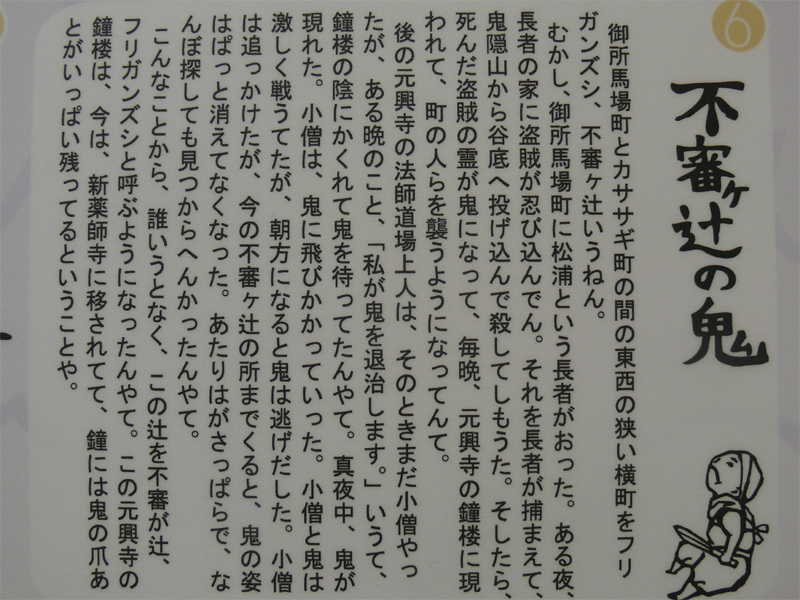 6
不審ヶ辻の鬼
御所馬場町とカササギ町の間の東西の狭い横町をフリ
ガンズシ、不審ヶ辻いうねん。
むかし、御所馬場町に松浦という長者がおった。ある夜、
長者の家に盗賊が忍び込んでん。それを長者が捕まえて、
鬼隠山から谷底へ投げ込んで殺してしもうた。そしたら、
死んだ盗賊の霊が鬼になって、毎晩、元興寺の鐘楼に現
われて、町の人らを襲うようになってんて。
後の元興寺の法師道場上人は、そのときまだ小僧やっ
たが、ある晩のこと、「私が鬼を退治します。」いうて、
鐘楼の陰にかくれて鬼を待ってたんやて。真夜中、鬼が
現れた。小僧は、鬼に飛びかかっていった。小僧と鬼は
激しく戦うてたが、朝方になると鬼は逃げだした。小僧
は追っかけたが、今の不審ヶ辻の所までくると、鬼の姿
はぱっと消えてなくなった。あたりはがさっぱらで、な
んぼ探しても見つからへんかったんやて。
こんなことから、誰いうとなく、この辻を不審が辻、
フリガンズシと呼ぶようになったんやて。この元興寺の
鐘楼は、今は、新薬師寺に移されてて、鐘には鬼の爪あ
とがいっぱい残ってるということや。